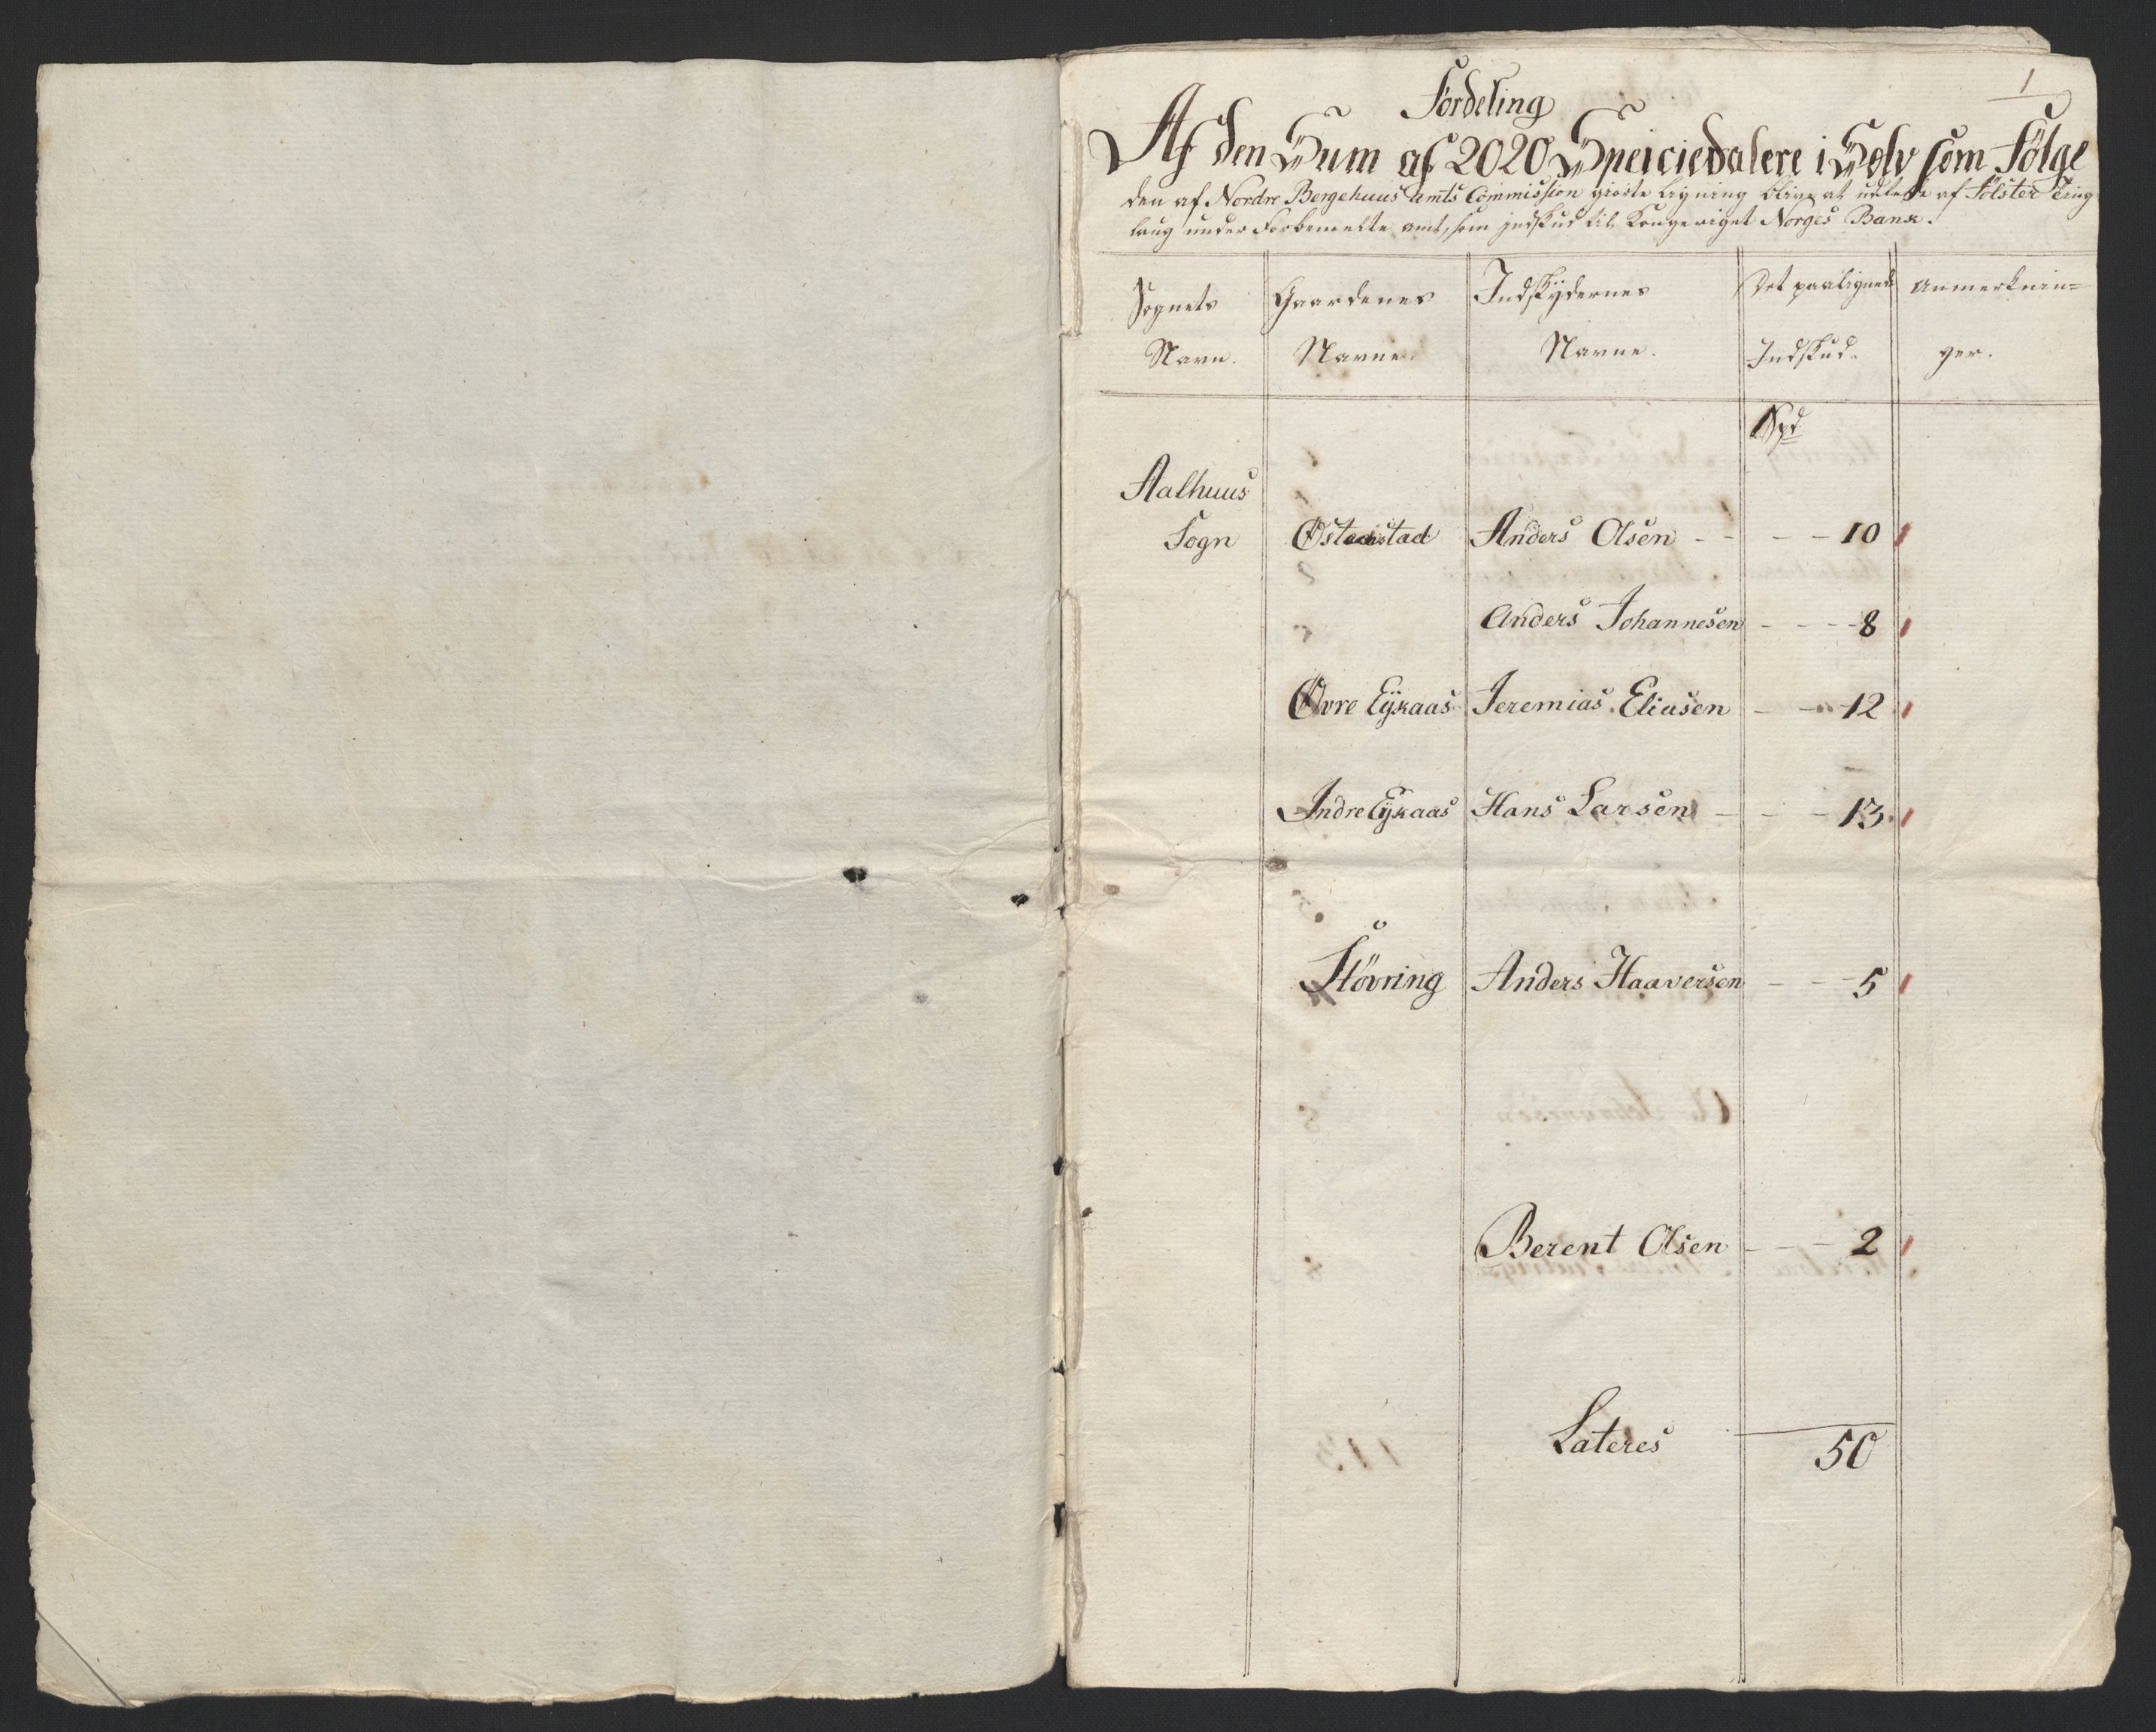 1
Fordeling
Af den Sum af 2020 Speiciedalere i Sølv som Følge
den af Nordre Bergehuus Amts Commission giorte Ligning bliver at udrede af Jølster Ting
laug under Forbemelte Amt, som Indskud til Kongeriget Norges Bank.
Sognets Navn. Gaardenes Navne. Indskÿdernes Navne. Det paalignede Indskud. Anmerknin=
ger.
Spd
Aalhuus
Sogn Anders Olsen - - - - 10
Anders Johannesen - - - - 8
Øvre Eÿkaas Jeremias Eliasen - - 12
Indre Eÿkaas Hans Larsen - - - - 13
Støvring Anders Haaversen - - - 5
Berent Olsen - - - 2
Lateres 50